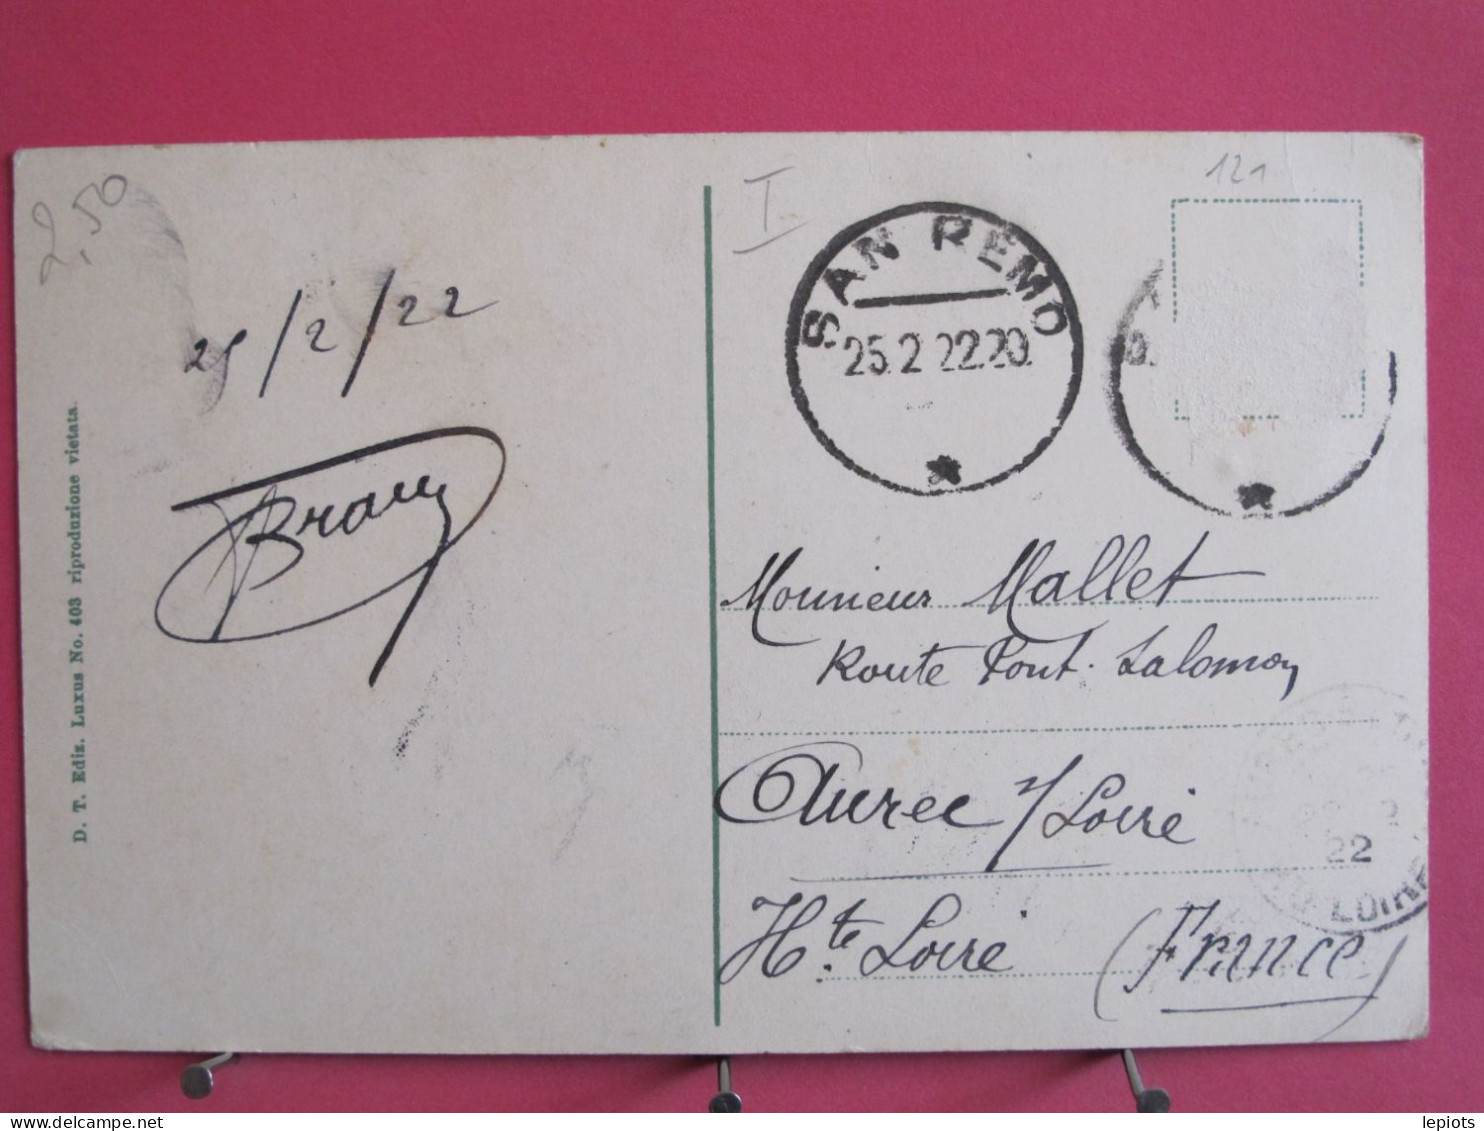 2,50
25/2/22
D. T. Ediz. Luxus No. 403 riproduzione vietata.
I
121
SAN REMO
25.2.22.20.
Monsieur Mallet
Route Pont-Salomon
Aurec s/Loire
Hte Loire (France)
22
LOIRE
lepiots
delcampe.net